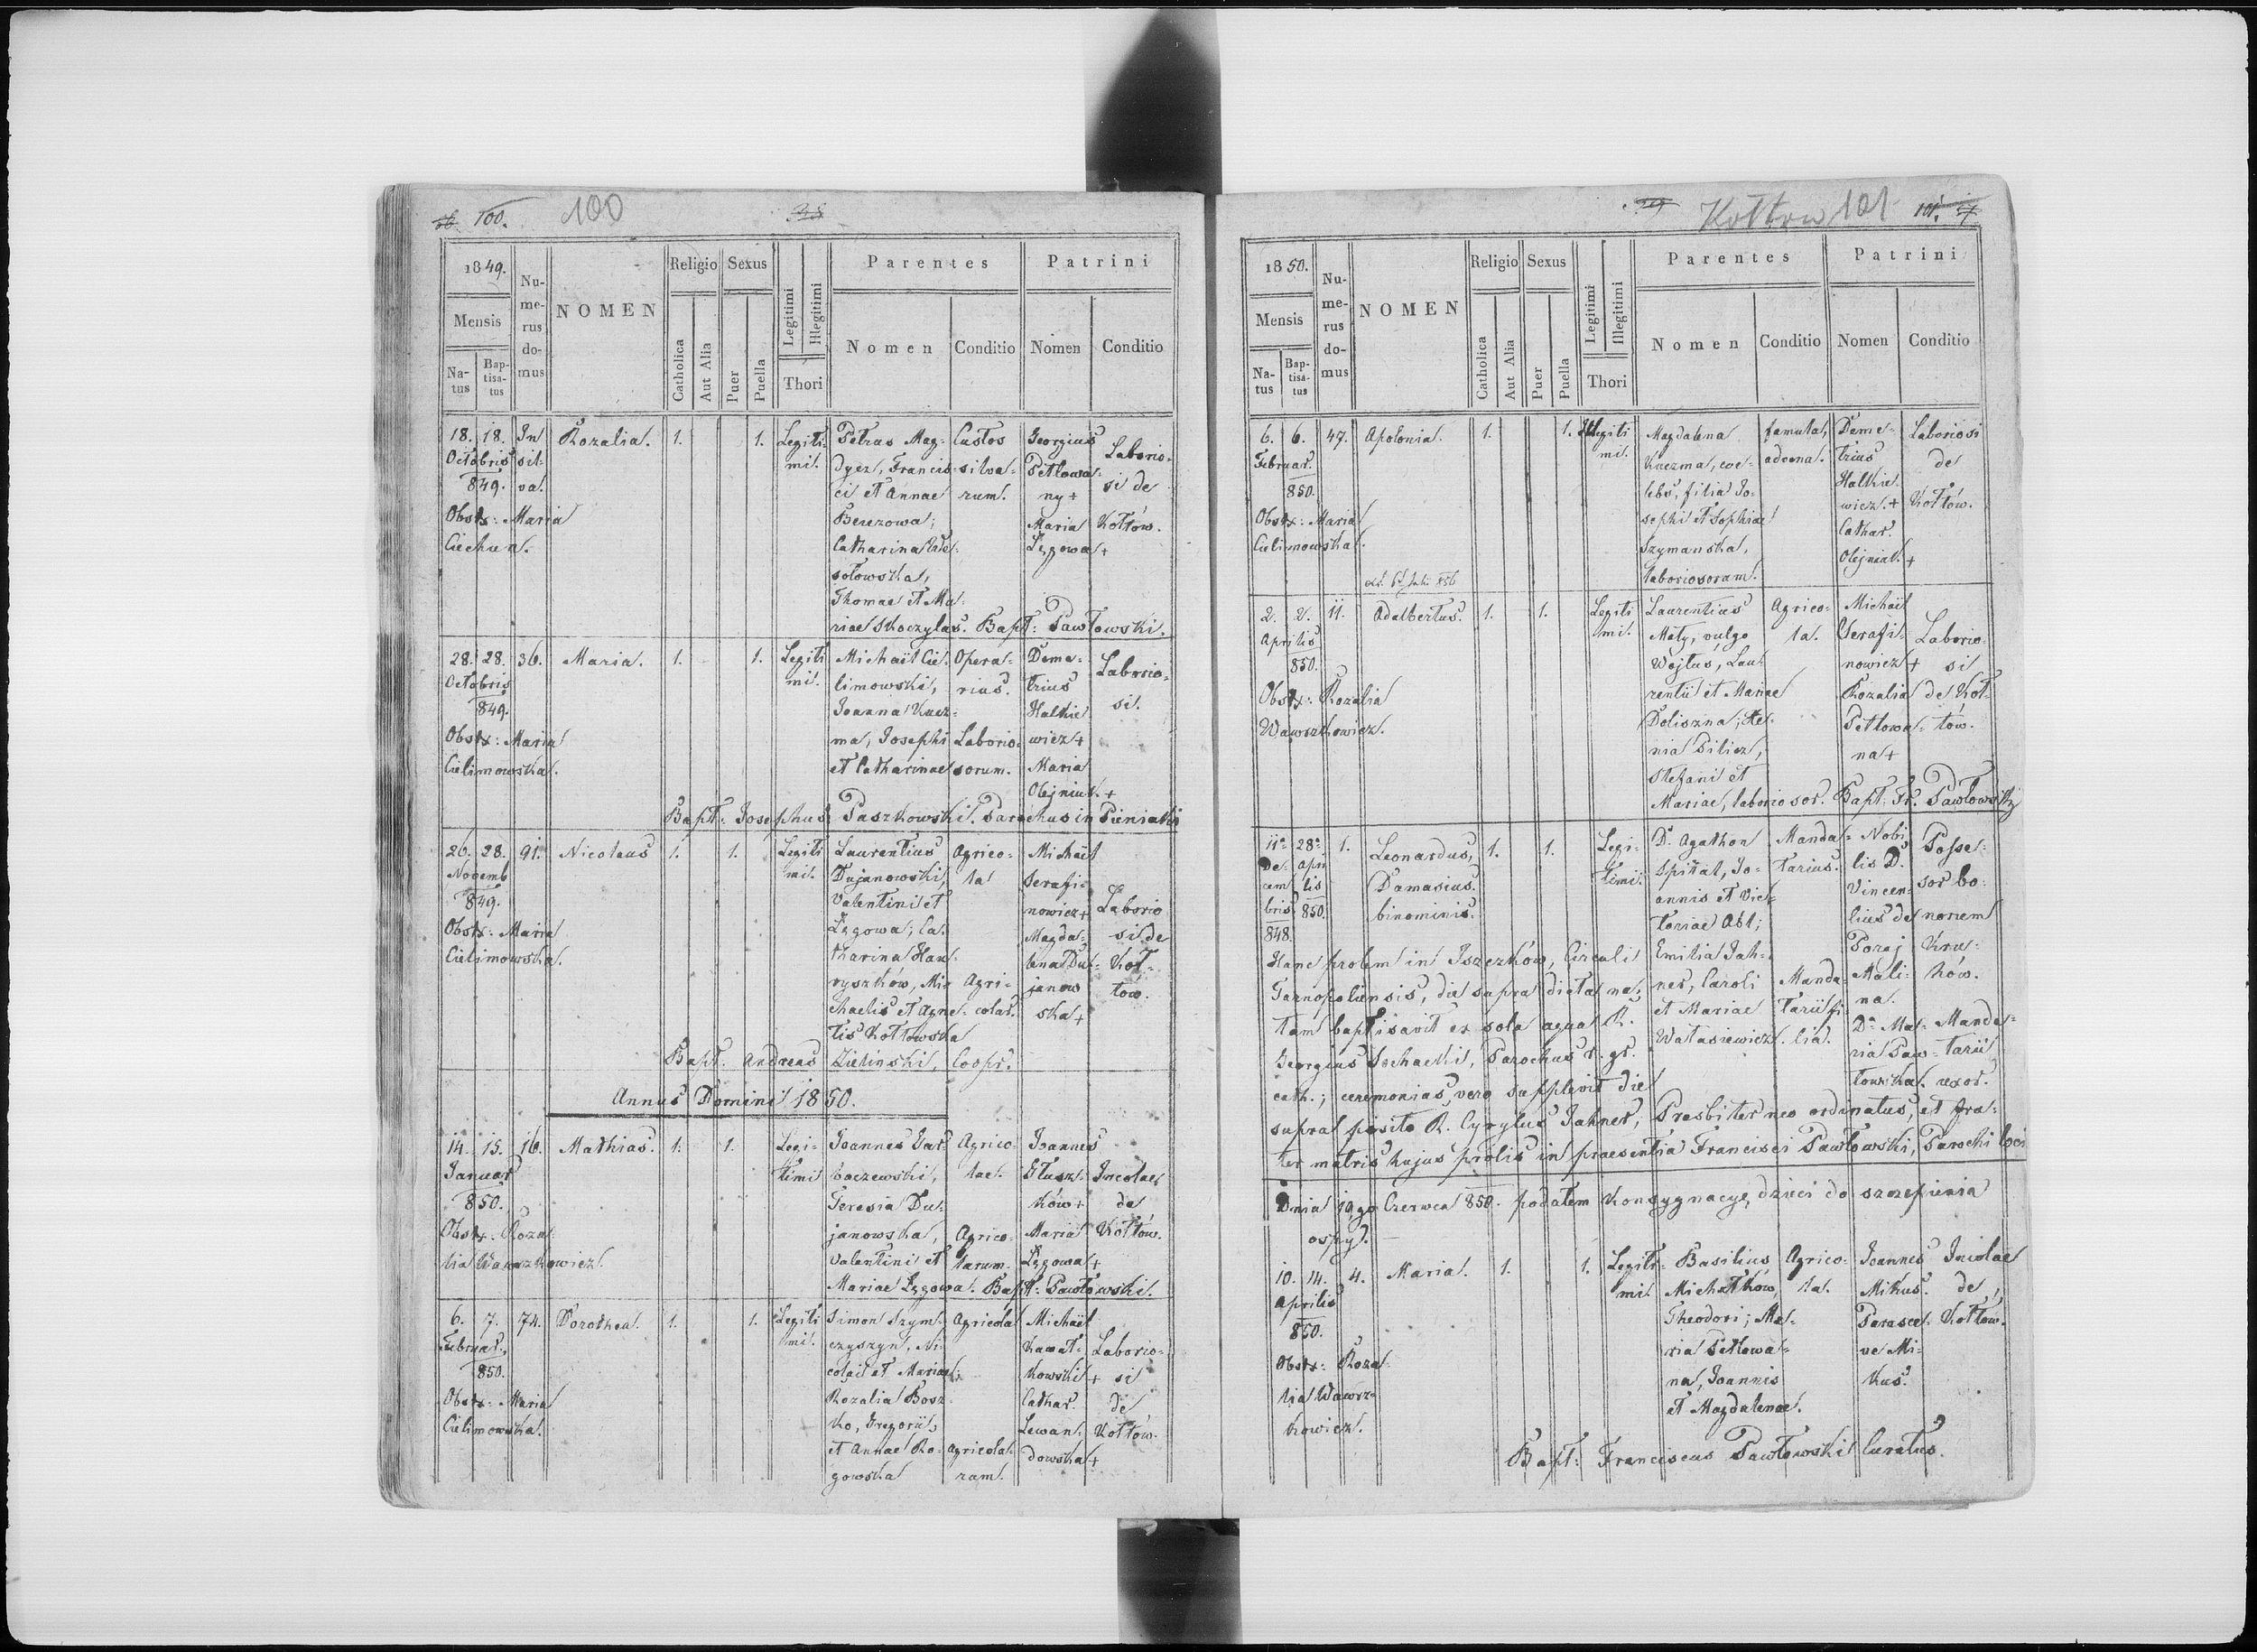 100.
100
1849.
Mensis
Na-
tus
Bap-
tisa-
tus
Nu-
me-
rus
do-
mus
NOMEN
Religio
Catholica
Aut Alia
Sexus
Puer
Puella
Legitimi
Illegitimi
Thori
Parentes
Nomen
Conditio
Patrini
Nomen
Conditio
18. 18. In
Octobris sil-
849. va.
Obstx: Maria
Ciechun.
Rozalia. 1. 1.
Legiti
mi.
Petrus Mag-
dyez, Francis-
ci et Annae
Berezowa;
Catharina
sołowska,
Thomae et Ma-
riae Skoczylas. Bapt: Pawłowski.
Custos
silva-
rum.
Georgius
Petłowa-
ny +
Maria
Lęgowa +
Laborio-
si de
Kołtów.
28. 28. 36.
Octobris
849.
Obstx: Maria
Cielimowska.
Maria. 1. 1.
Legiti
mi.
Michaël Cie-
limowski,
Joanna Kucz-
ma, Josephi
et Catharinae
Opera-
rius.
Laborio-
sorum.
Deme-
trius
Halkie-
wicz +
Maria
Olejniuk. +
Laborio-
si.
Bapt: Josephus Paszkowski. Parochus in Pieniaki
26. 28. 91.
Novemb
849.
Obstx: Maria
Cielimowska.
Nicolaus 1. 1.
Legiti
mi.
Laurentius
Dujanowski,
Valentini et
Lęgowa; Ca-
tharina Haw-
ryszków, Mi-
chaelis et Agne-
tis Kołtowska
Agrico-
la
Agri-
colar.
Michaël
Serafi-
nowicz +
Magda-
lena Du-
janow
ska +
Laborio
si de
Koł-
tow.
Bapt: Andreas Zielinski, Coopr.
Annus Domini 1850.
14. 15. 16.
Januar
850.
Obstx: Roza-
lia Wawrzkowicz.
Mathias. 1. 1.
Legi-
timi
Joannes Gar-
baczewski,
Teresia Du-
janowska,
Valentini et
Mariae Lęgowa. Bapt: Pawłowski.
Agrico-
lae.
Agrico-
larum.
Joannes
Głusz-
ków +
Maria
Lęgowa +
Incolae
de
Kołtów.
6. 7. 74.
Februar.
850.
Obstx: Maria
Cielimowska.
Dorothea. 1. 1.
Legiti
mi.
Simon Szym-
czyszyn, Ni-
colai et Mariae;
Rozalia Bosz-
ko, Gregorii,
et Annae Ro-
gowska
Agricola
Agricola-
rum.
Michaël
kowski +
Cathar.
Lewan-
dowska +
Laborio-
si
de
Kołtów.
Kołtow 101
101.
1850.
Mensis
Na-
tus
Bap-
tisa-
tus
Nu-
me-
rus
do-
mus
NOMEN
Religio
Catholica
Aut Alia
Sexus
Puer
Puella
Legitimi
Illegitimi
Thori
Parentes
Nomen
Conditio
Patrini
Nomen
Conditio
6. 6. 47.
Februar.
850.
Obstx: Maria
Cielimowska.
Apolonia. 1. 1.
Illegiti
mi.
Magdalena
Kuczma, coe-
lebs, filia Jo-
sephi et Sophiae
Szymanska,
laboriosorum.
famula,
advena.
Deme-
trius
Halkie-
wicz. +
Cathar.
Olejniak. +
Laboriosi
de
Kołtów.
2. 2. 11.
Aprilis
850.
Obstx: Rozalia
Wawrzkowicz.
Adalbertus. 1. 1.
Legiti
mi.
Laurentius
Maty, vulgo
Wojtus, Lau-
rentii et Mariae
Doliszna; Xe-
nia Pilicz,
Stefani et
Mariae, laborios. Bapt: Fr. Pawłowski
Agrico-
la.
Michaël
Serafi-
nowicz +
Rozalia
Petłowa-
na +
Laborio-
si
de Koł-
tow.
11a 28a 1.
De- Apri
cem lis
bris 850.
848.
Leonardus,
Damasius.
binominis.
1. 1.
Legi-
timi.
D. Agathon
Spital, Jo-
annis et Vic-
toriae Abt;
Emilia Jah-
ner, Caroli
et Mariae
Watasiewicz.
Manda-
tarius.
Manda-
tarii fi-
lia.
Nobi
lis D.
Vincen-
tius de
Poraj
Mali-
na.
Da Ma-
ria Paw-
łowska.
Posse-
sor bo-
norum
Kru-
ków.
Manda-
tarii
uxor.
Hanc prolem in Iszczków, Circuli
Tarnopoliensis, die supra dicta na-
tam baptisavit ex sola aqua R.
Georgius Sochacki, Parochus r. gr.
cath.; ceremonias vero supplevit die
supra posito R. Cyrylus Jahner, Presbiter neo ordinatus, et fra-
ter matris hujus prolis in praesentia Francisci Pawłowski, Parochi loci
Dnia 19go Czerwca 850. podałem konsygnacyę dzieci do szczepienia
ospy.
10. 14. 4.
Aprilis
850.
Obstx: Roza-
lia Wawrz-
kowicz.
Maria. 1. 1.
Legiti-
mi.
Basilius
Michałków,
Theodori; Ma-
ria Petłowa-
na, Joannis
et Magdalenae.
Agrico-
la.
Joannes
Mikus.
Parasce-
ve Mi-
kus.
Incolae
de
Kołtow.
Bapt: Franciscus Pawłowski Curatus.